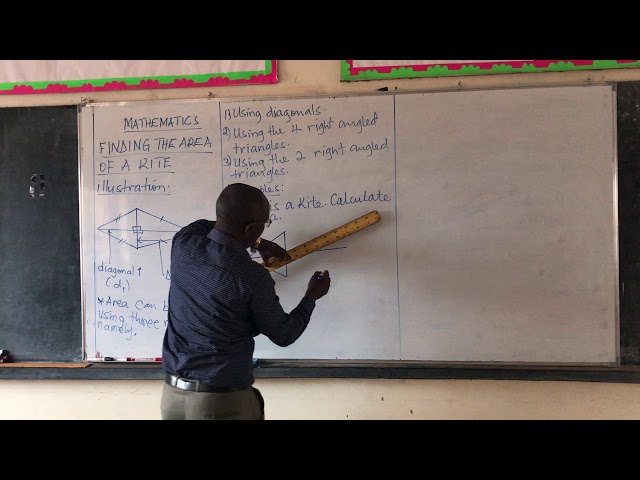 MATHEMATICS
FINDING THE AREA
OF A KITE
illustration:
diagonal 1
(d1)
*Area can
using three
namely,
1) Using diagonals.
2) Using the 4 right angled
triangles.
3) Using the 2 right angled
triangles.
is a Kite. Calculate